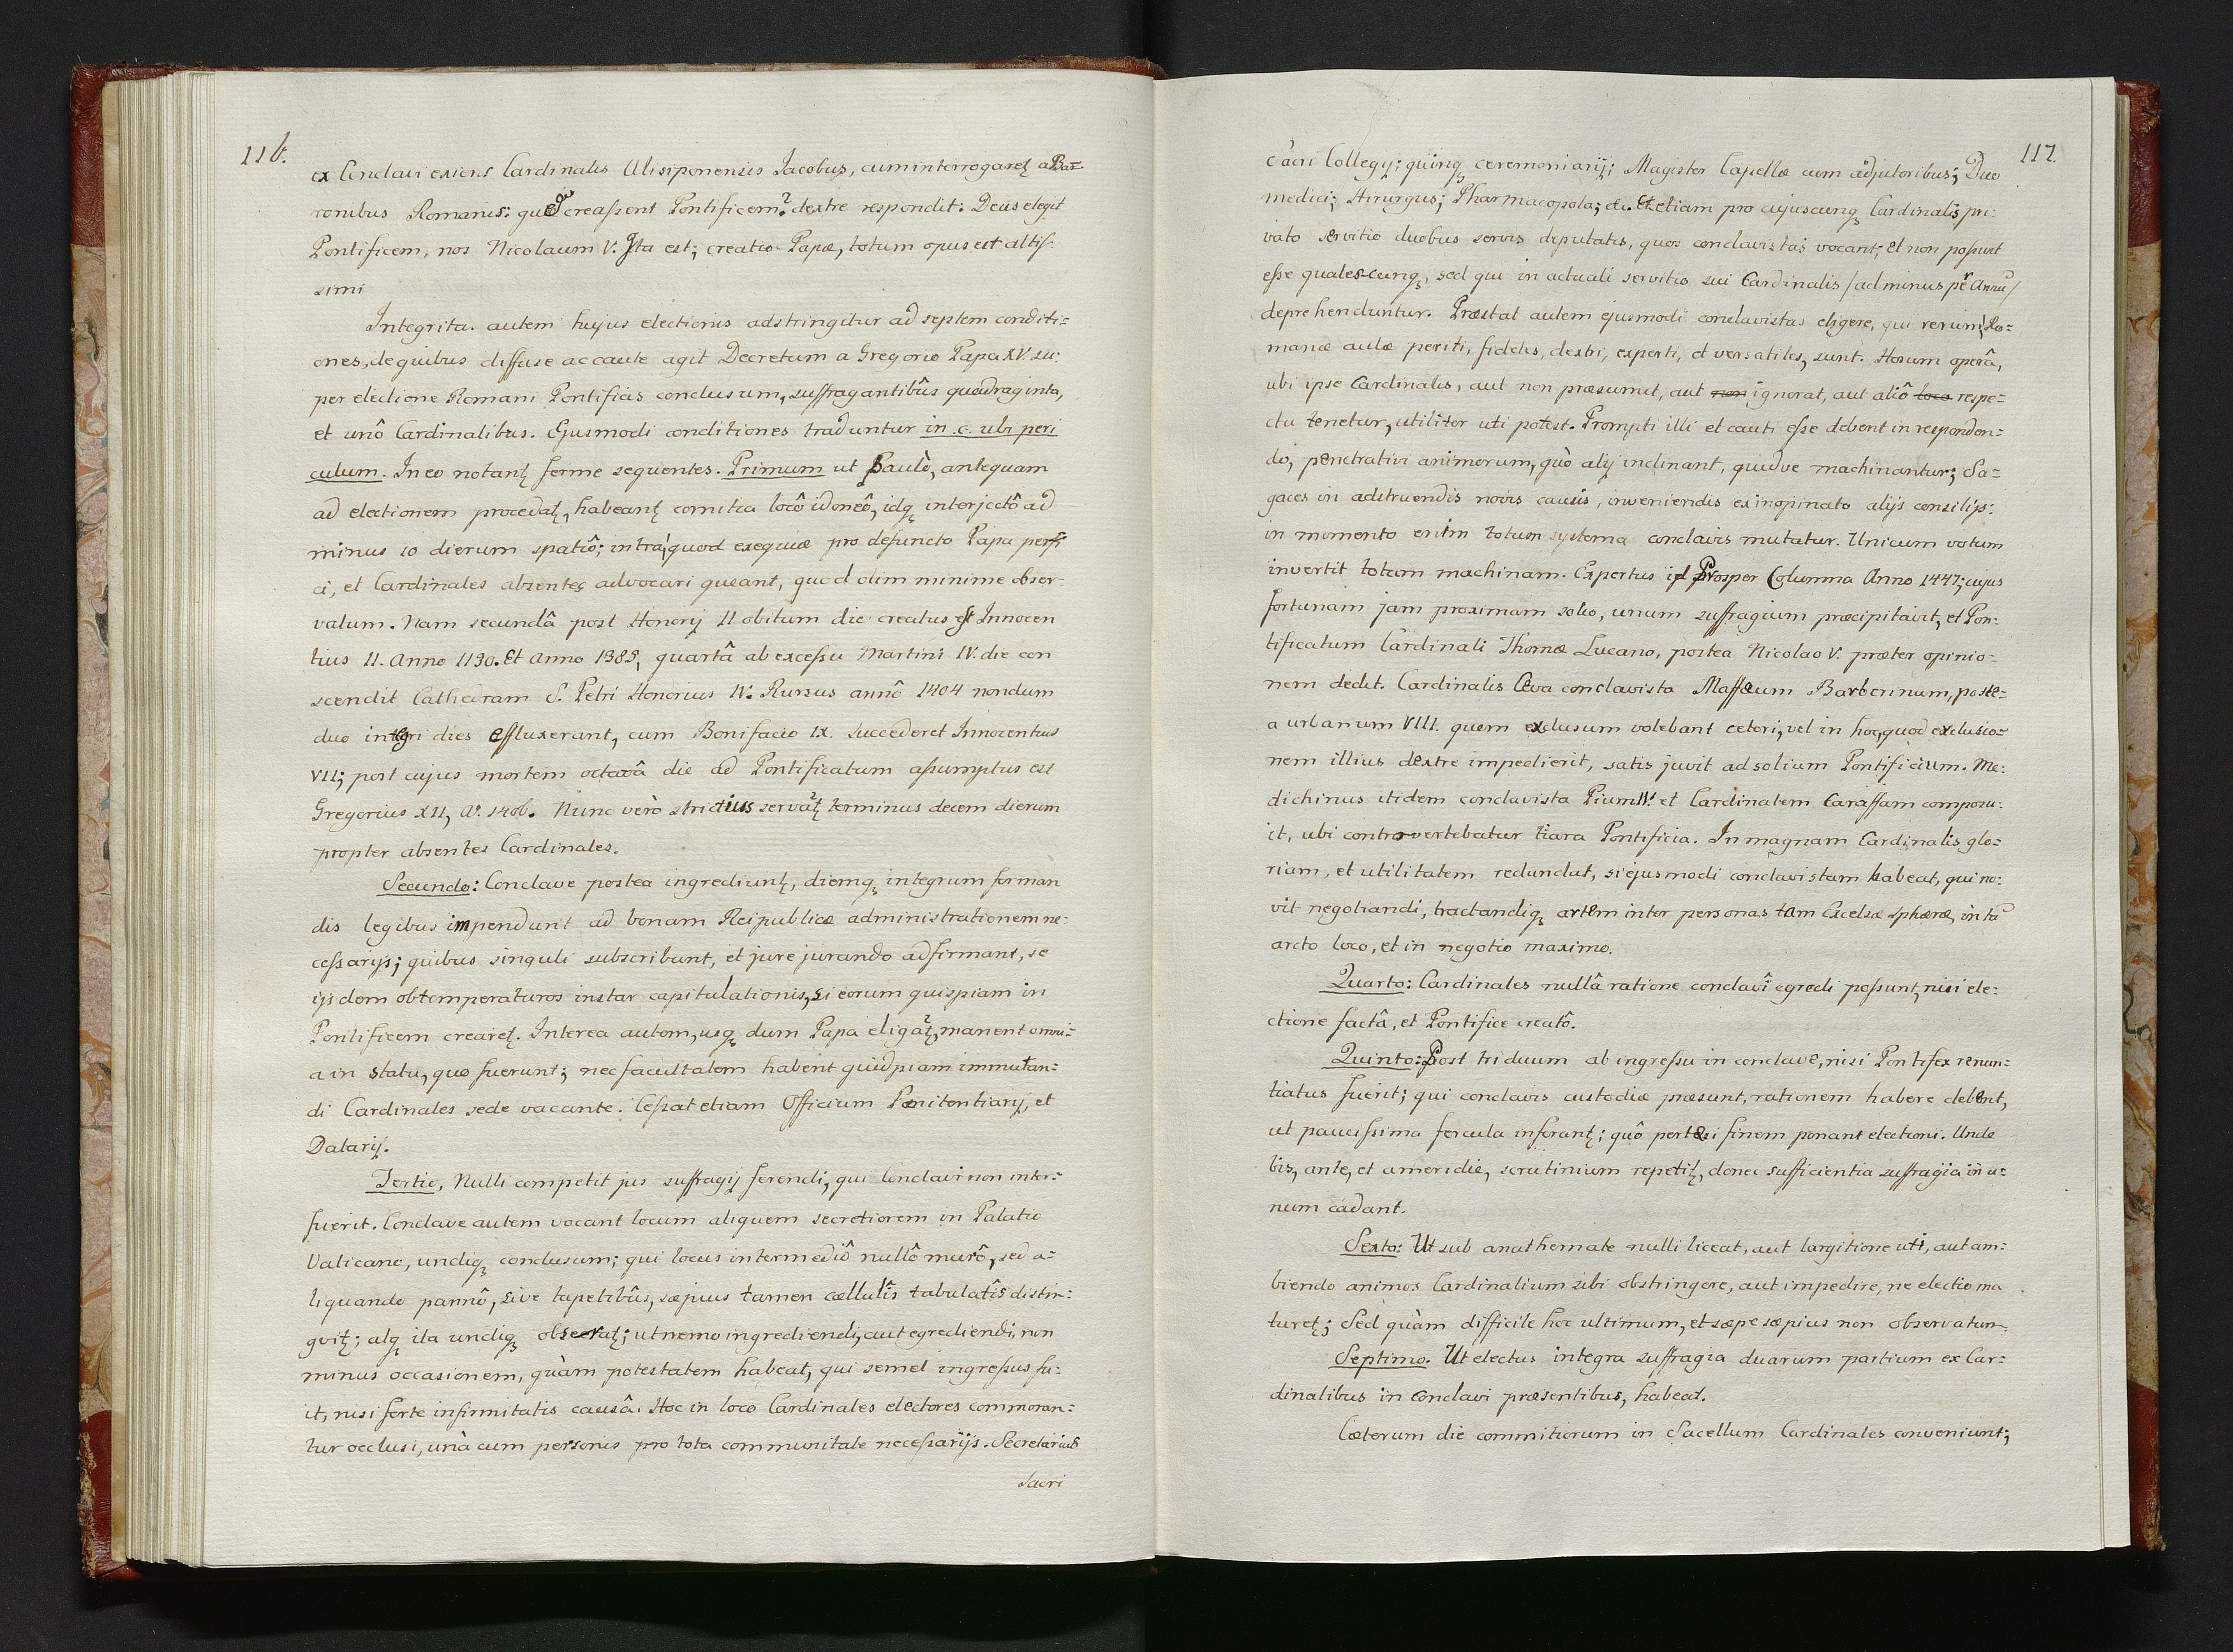 116.
ex Conclavi exiens Cardinalis Ulisiponensis Jacobus, cum interrogaretꝫ a Ba=
ronibus Romanis: quē creassent Pontificem? dextre respondit: Deus elegit
Pontificem, nos Nicolaum V. Ita est; creatio Papæ, totum opus est altis:
simi
Integrita. autem hujus electionis adstringitur ad septem conditi=
ones, de quibus diffuse ac caute agit Decretum a Gregorio Papa XV. su:
per electione Romani Pontificis conclusum, suffragantibûs quadraginta,
et unô Cardinalibus. Ejusmodi conditiones traduntur in c. ubi peri
culum. In eo notantꝫ ferme sequentes. Primum ut Paulò, antequam
ad electionem procedatꝫ, habeantꝫ comitia locô idoneô, idqꝫ interjectô ad
minus 10 dierum spatiô; intra, quod exequiæ pro defuncto Papa perfi
ci, et Cardinales absentes advocari queant, quod olim minime obser-
vatum. Nam secundâ post Honorij II obitum die creatus est Innocen
tius II. Anno 1130. Et Anno 1385, quartâ ab excessu Martini IV. die con
scendit Cathedram S. Petri Honorius IV. Rursus annô 1404 nondum
duo integri dies effluxerant, cum Bonifacio IX. succederet Innocentius
VII; post cujus mortem octavâ die ad Pontificatum assumptus est
Gregorius XII, A. 1406. Nunc verò strictius servatꝫ terminus decem dierum
propter absentes Cardinales.
Secundo: Conclave postea ingrediuntꝫ, diemqꝫ integrum forman
dis legibus impendunt ad bonam Reipublicæ administrationem ne:
cessarijs; quibus singuli subscribunt, et jure jurando adfirmant, se
ijsdem obtemperaturos instar capitulationis, si eorum quispiam in
Pontificem crearetꝫ. Interea autem, usqꝫ dum Papa eligatꝫ, manent omni=
a in statu, quo fuerunt; nec facultatem habent quidpiam immutan=
di Cardinales sede vacante. Cessat etiam Officium Pœnitentiarij, et
Datarij.
Tertio, Nulli competit jus suffragij ferendi, qui Conclavi non inter:
fuerit. Conclave autem vocant locum aliquem secretiorem in Palatio
Vaticano, undiqꝫ conclusum; qui locus intermediô nullô murô, sed a=
liquando pannô, sive tapetibûs, sæpius tamen cællulîs tabulatîs distin:
gvitꝫ; atqꝫ ita undiqꝫ obseratꝫ; ut nemo ingrediendi, aut egrediendi, non
minus occasionem, quàm potestatem habeat, qui semel ingressus fu:
it, nisi forte infirmitatis causâ. Hoc in loco Cardinales electores commoran=
tur occlusi, unà cum personis pro tota communitate necessarijs. Secretarius
Sacri
117.
Sacri Collegij; quinqꝫ ceremoniarij; Magister Capellæ cum adjutoribus; Duo
medici; Hirurgus; Pharmacopola; &c. Et etiam pro cujuscunqꝫ Cardinalis pri:
vato servitio duobus servis deputatis, quos conclavistas vocant; et non possunt
esse qualescunqꝫ, sed qui in actuali servitio sui Cardinalis /ad minus per Annū/
deprehenduntur. Præstat autem ejusmodi conclavistas eligere, qui rerum Ro=
manæ aulæ periti, fideles, dextri, experti, et versatiles, sunt. Horum operâ,
ubi ipse Cardinalis, aut non præsumit, aut non ignorat, aut aliô loco respe=
ctu tenetur, utiliter uti potest. Prompti illi et cauti esse debent in responden=
do, penetrativi animorum, quò alij inclinant, quidve machinantur; Sa=
gaces in adstruendis novis causis, inveniendis ex inopinato alijs consilijs:
in momento enim totum systema conclavis mutatur. Unicum votum
invertit totam machinam. Expertus id Prosper Columna Anno 1447; cujus
fortunam jam proximam solio, unum suffragium præcipitavit, et Pon:
tificatum Cardinali Thomæ Lucano, postea Nicolao V. præter opinio=
nem dedit. Cardinalis Ceva conclavista Maffæum Barberinum, poste=
a urbanum VIII. quem exclusum volebant ceteri, vel in hoc, quod exclusio=
nem illius dextre impedierit, satis juvit ad solium Pontificium. Me:
dichinus itidem conclavista Pium IV. et Cardinalem Caraffam composu:
it, ubi controvertebatur tiara Pontificia. In magnam Cardinalis glo=
riam, et utilitatem redundat, si ejusmodi conclavistam habeat, qui no:
vit negotiandi, tractandiqꝫ artem inter personas tam Excelsæ sphæræ, in tā
arcto loco, et in negotio maximo.
Quarto: Cardinales nullâ ratione conclavî egredi possunt, nisi ele=
ctione factâ, et Pontifice creatô.
Quinto: Post triduum ab ingressu in conclave, nisi Pontifex renun=
tiatus fuerit; qui conclavis custodiæ præsunt, rationem habere debent,
ut paucissima fercula inferantꝫ; quô pertæsi finem ponant electioni. Unde
bis, ante, et a meridie, scrutinium repetitꝫ, donec sufficientia suffragia in u=
num cadant.
Sexto: Ut sub anathemate nulli liceat, aut largitione uti, aut am=
biendo animos Cardinalium sibi obstringere, aut impedire, ne electio ma
turetꝫ; Sed quàm difficile hoc ultimum, et sæpe sæpius non observatum.
Septimo. Ut electus integra suffragia duarum partium ex Car=
dinalibus in Conclavi præsentibus, habeat.
Cæterum die commitiorum in Sacellum Cardinales conveniunt;